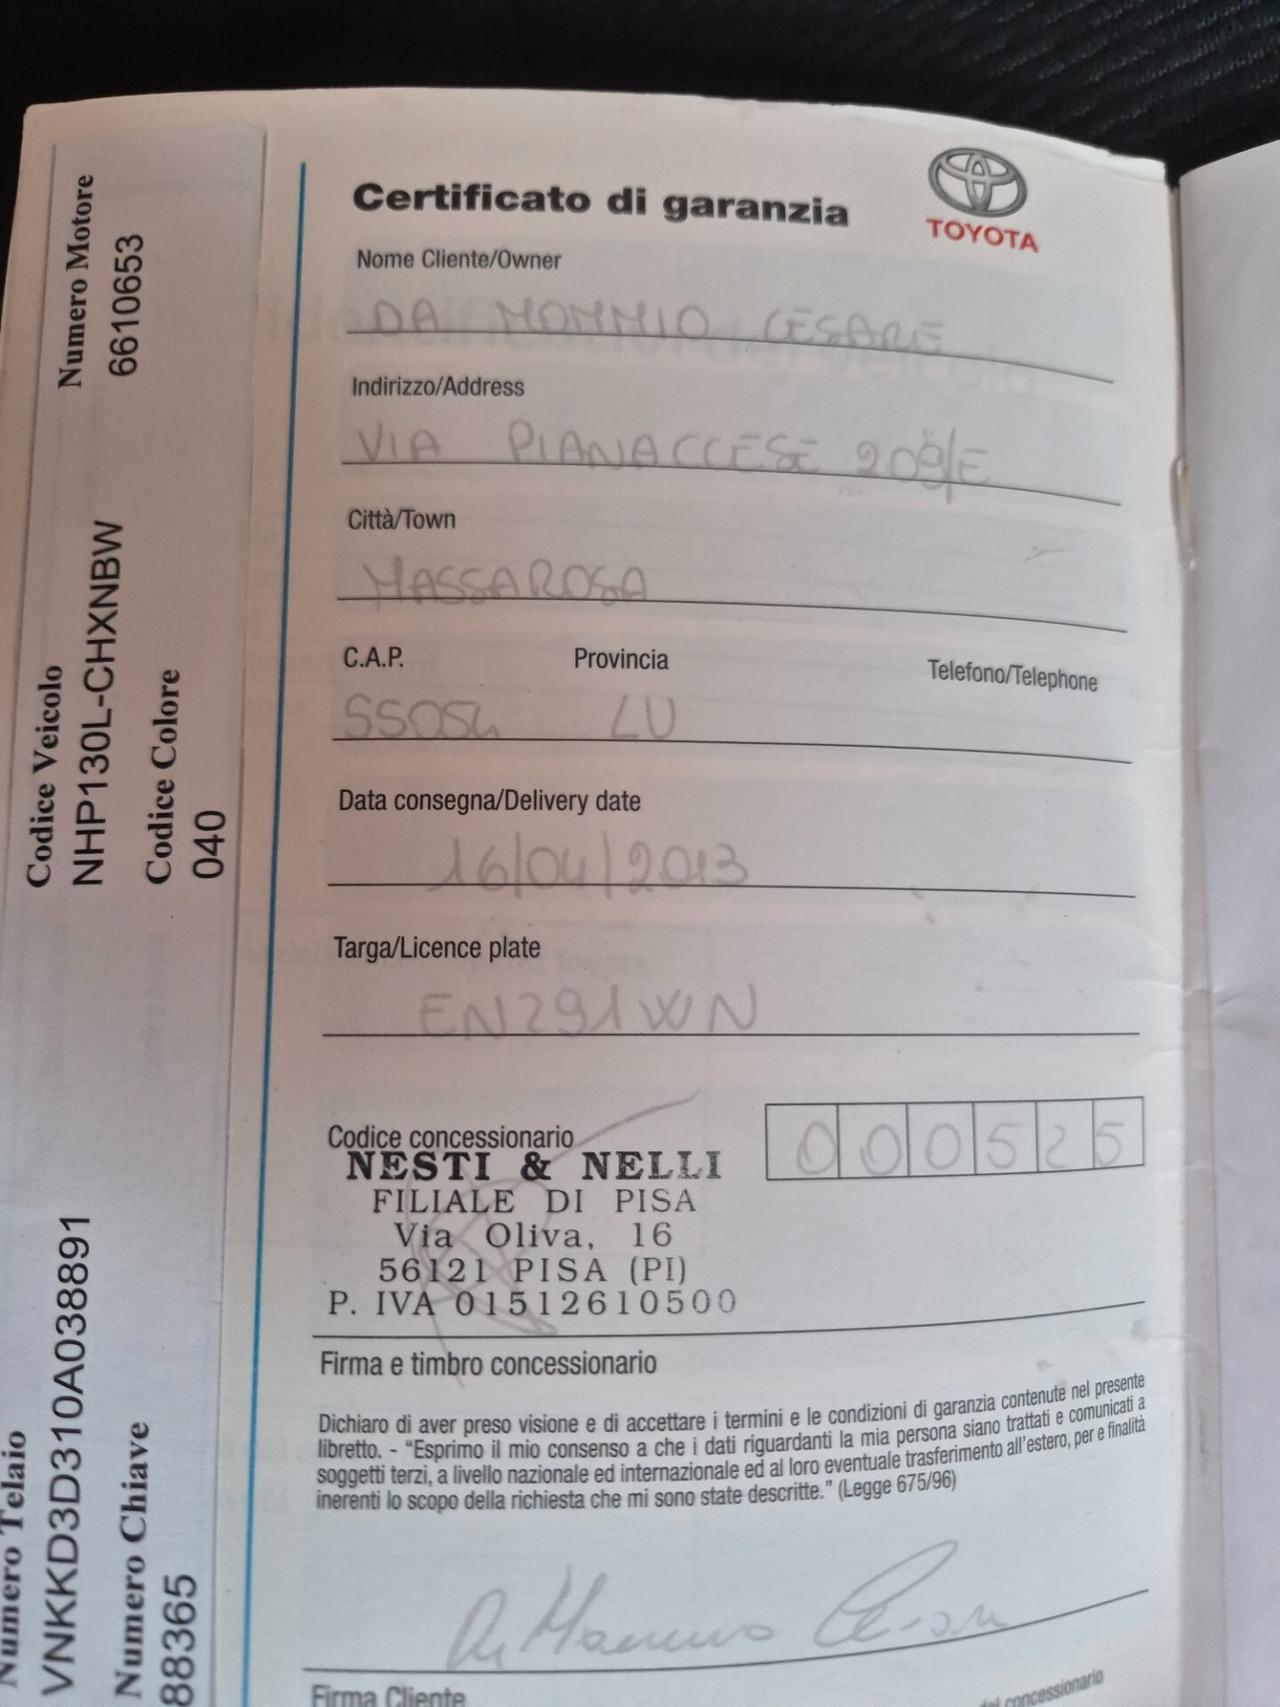 Numero Motore
6610653
Codice Veicolo
NHP130L-CHXNBW
Codice Colore
040
Numero Telaio
VNKKD3D310A038891
Numero Chiave
88365
Certificato di garanzia
TOYOTA
Nome Cliente/Owner
DA MOMMIO CESARE
Indirizzo/Address
VIA PIANACCESE 209/E
Città/Town
MASSAROSA
C.A.P. Provincia Telefono/Telephone
55054 LU
Data consegna/Delivery date
16/04/2013
Targa/Licence plate
EN291WN
Codice concessionario 000525
NESTI & NELLI
FILIALE DI PISA
Via Oliva, 16
56121 PISA (PI)
P. IVA 01512610500
Firma e timbro concessionario
Dichiaro di aver preso visione e di accettare i termini e le condizioni di garanzia contenute nel presente
libretto. - “Esprimo il mio consenso a che i dati riguardanti la mia persona siano trattati e comunicati a
soggetti terzi, a livello nazionale ed internazionale ed al loro eventuale trasferimento all'estero, per e finalità
inerenti lo scopo della richiesta che mi sono state descritte.” (Legge 675/96)
Da Mommio Cesare
Firma Cliente
concessionario